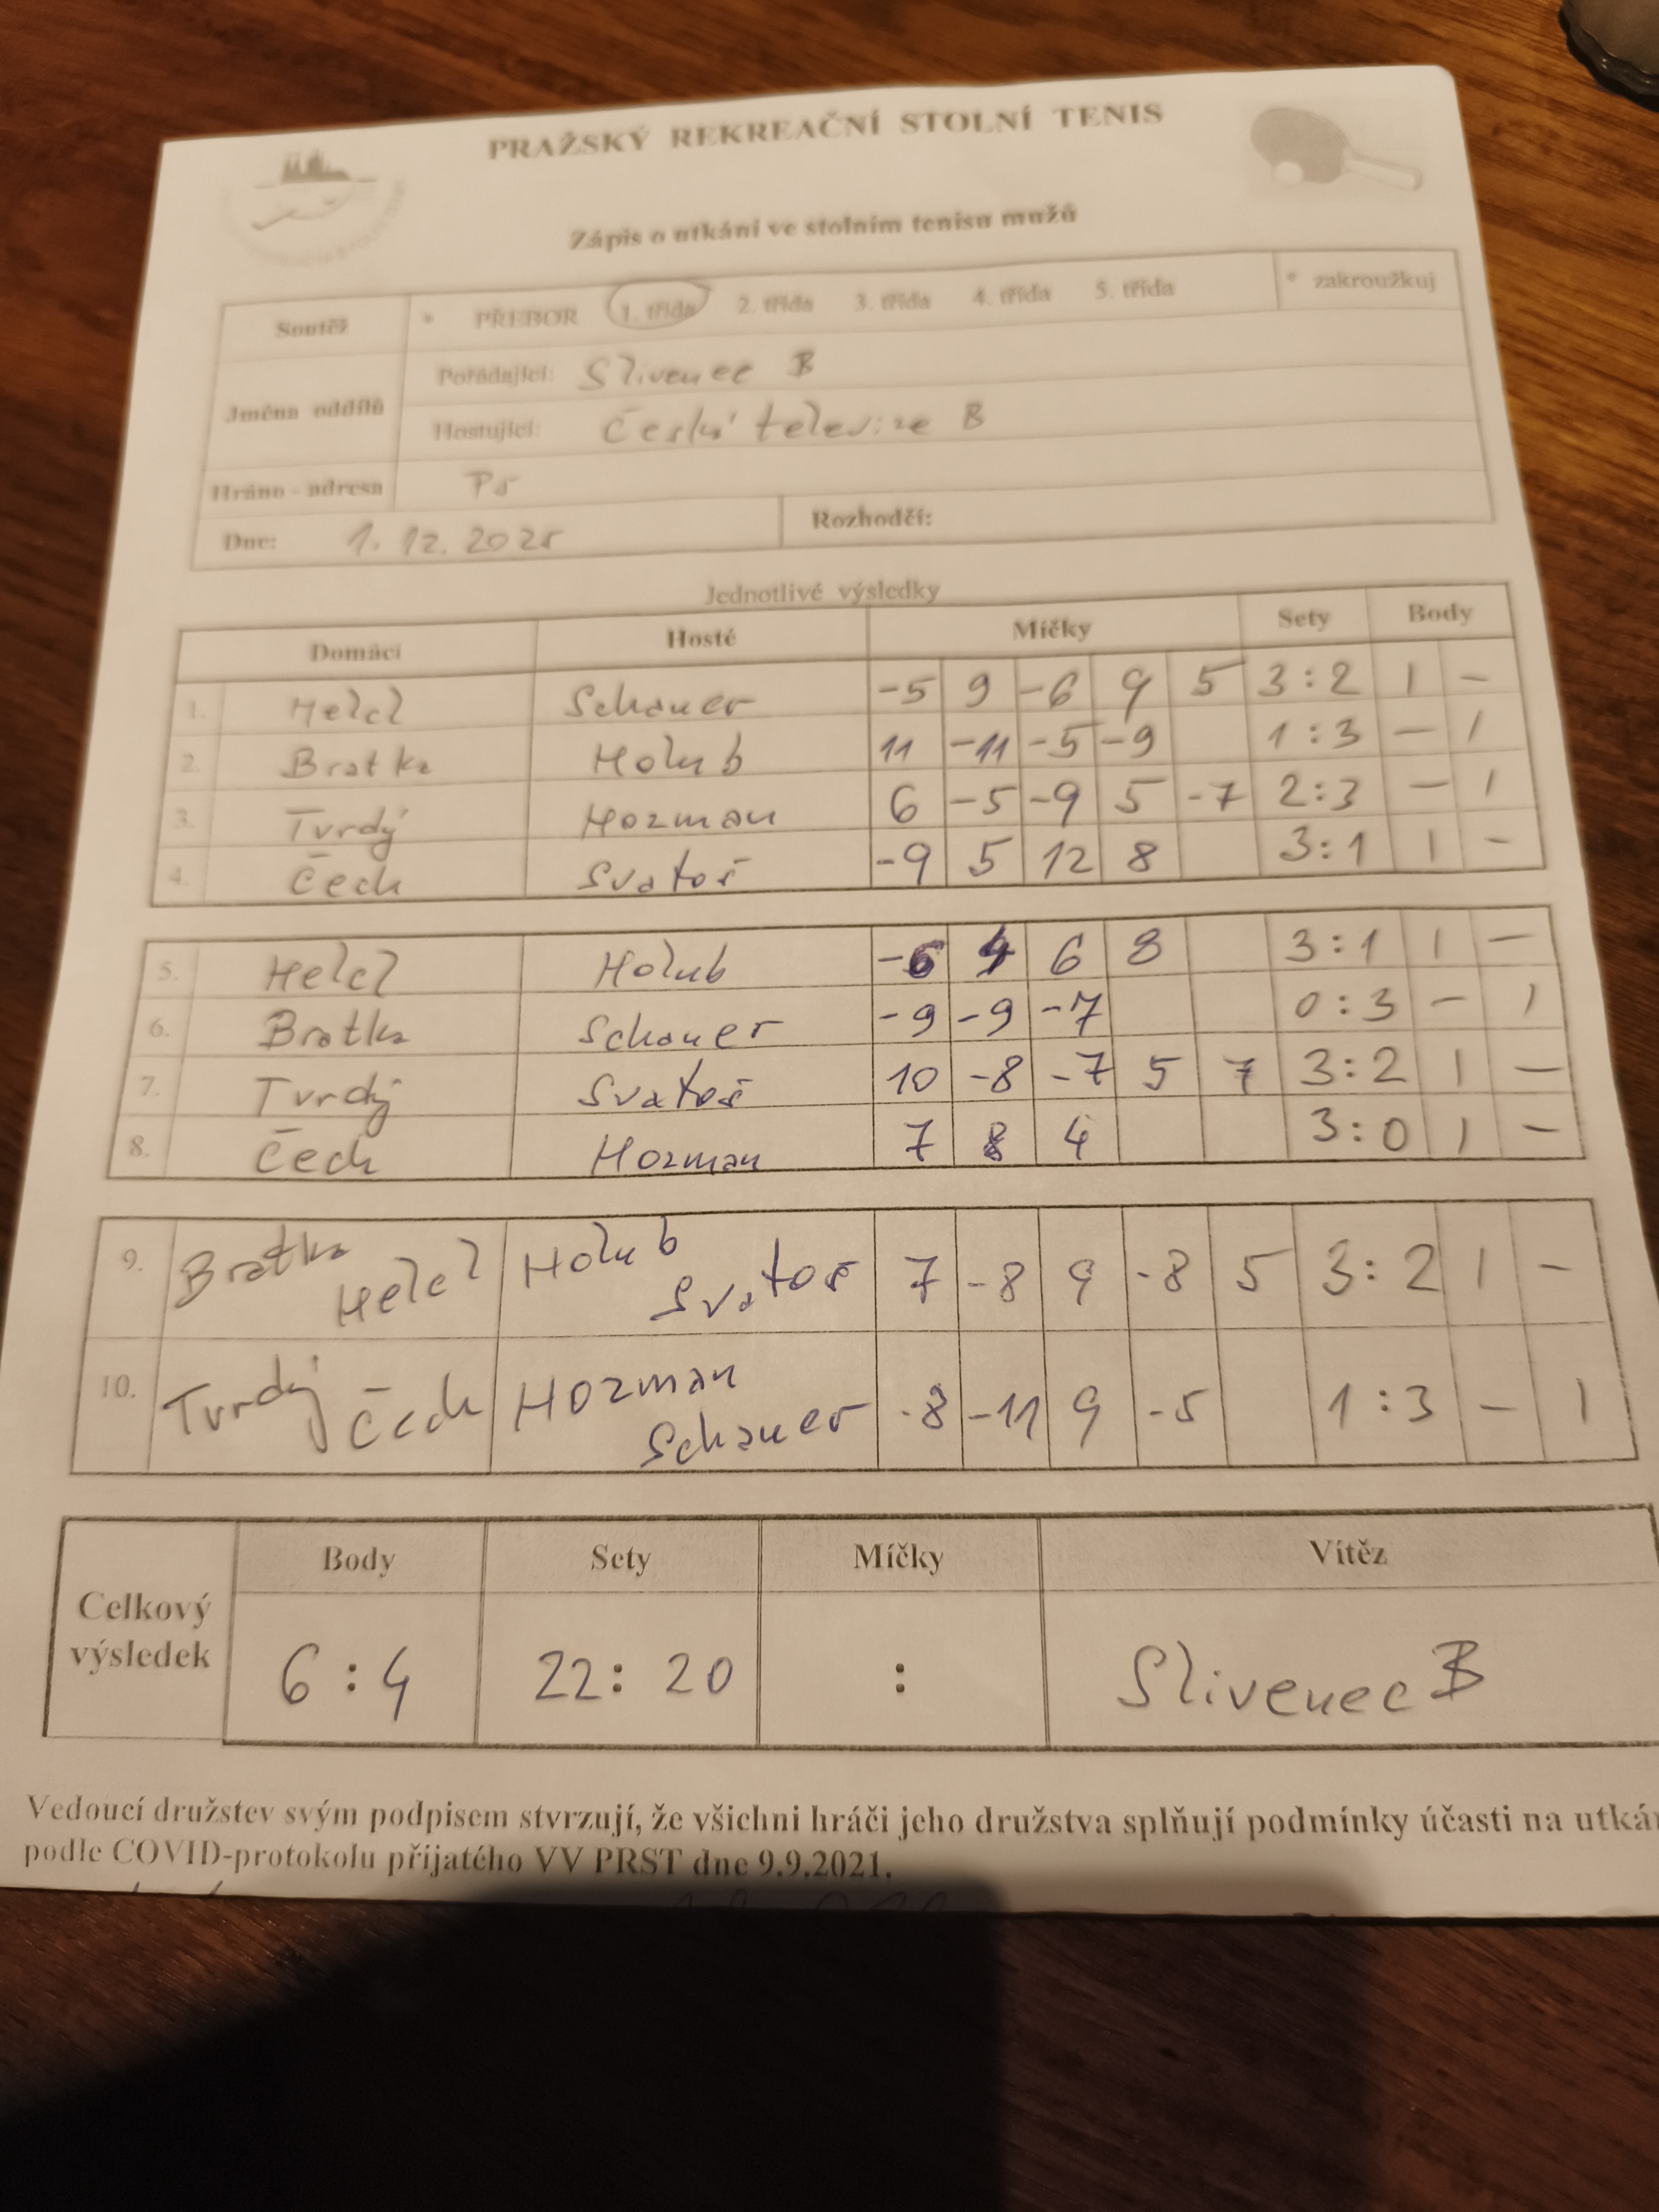 PRAŽSKÝ REKREAČNÍ STOLNÍ TENIS
Zápis o utkání ve stolním tenisu mužů
Soutěž * PŘEBOR 1. třída 2. třída 3. třída 4. třída 5. třída * zakroužkuj
Jména oddílů
Pořádající: Slivenec B
Hostující: Česká televize B
Hráno - adresa P5
Dne: 1. 12. 2025 Rozhodčí:
Jednotlivé výsledky
Domácí Hosté Míčky Sety Body
1. Helcl Schauer -5 9 -6 9 5 3:2 1 -
2. Bratka Holub 11 -11 -5 -9 1:3 - 1
3. Tvrdý Hozman 6 -5 -9 5 -7 2:3 - 1
4. Čech Svatoš -9 5 12 8 3:1 1 -
5. Helcl Holub -6 4 6 8 3:1 1 -
6. Bratka Schauer -9 -9 -7 0:3 - 1
7. Tvrdý Svatoš 10 -8 -7 5 7 3:2 1 -
8. Čech Hozman 7 8 4 3:0 1 -
9. Bratka Helcl Holub Svatoš 7 -8 9 -8 5 3:2 1 -
10. Tvrdý Čech Hozman Schauer -8 -11 9 -5 1:3 - 1
Celkový výsledek
Body Sety Míčky Vítěz
6:4 22:20 : Slivenec B
Vedoucí družstev svým podpisem stvrzují, že všichni hráči jeho družstva splňují podmínky účasti na utká
podle COVID-protokolu přijatého VV PRST dne 9.9.2021.